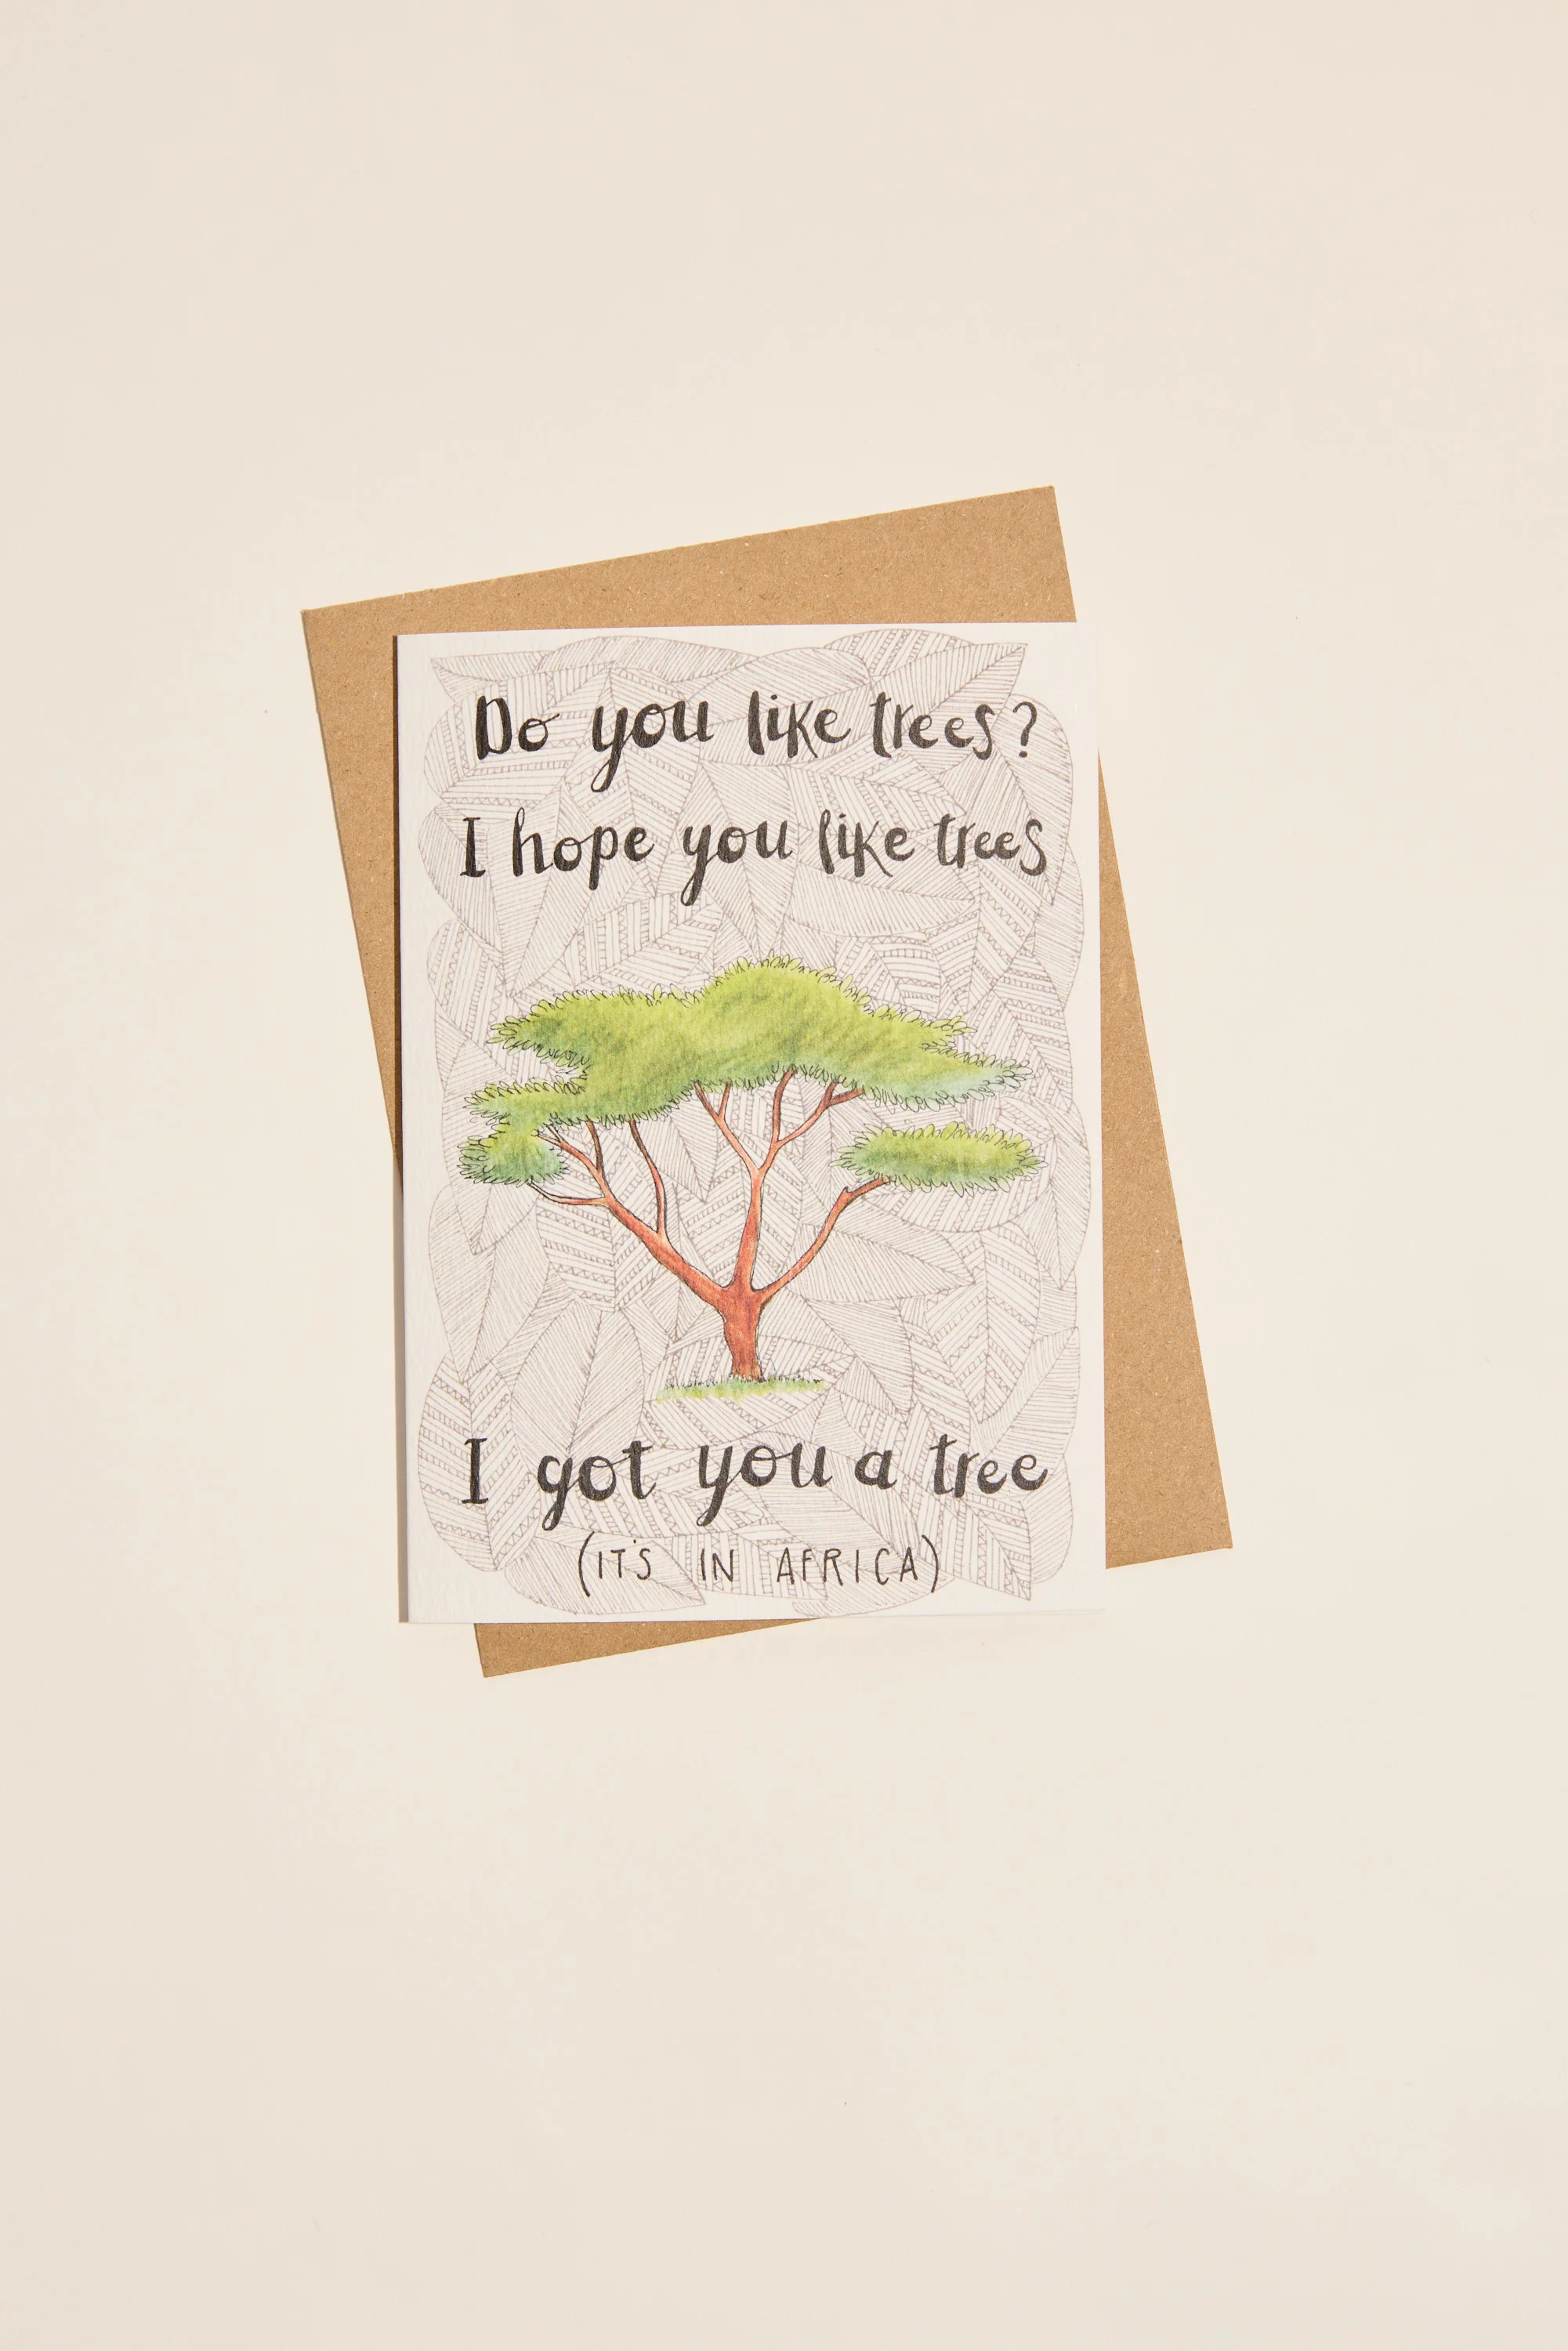 Do you like trees?
I hope you like trees
I got you a tree
(IT'S IN AFRICA)